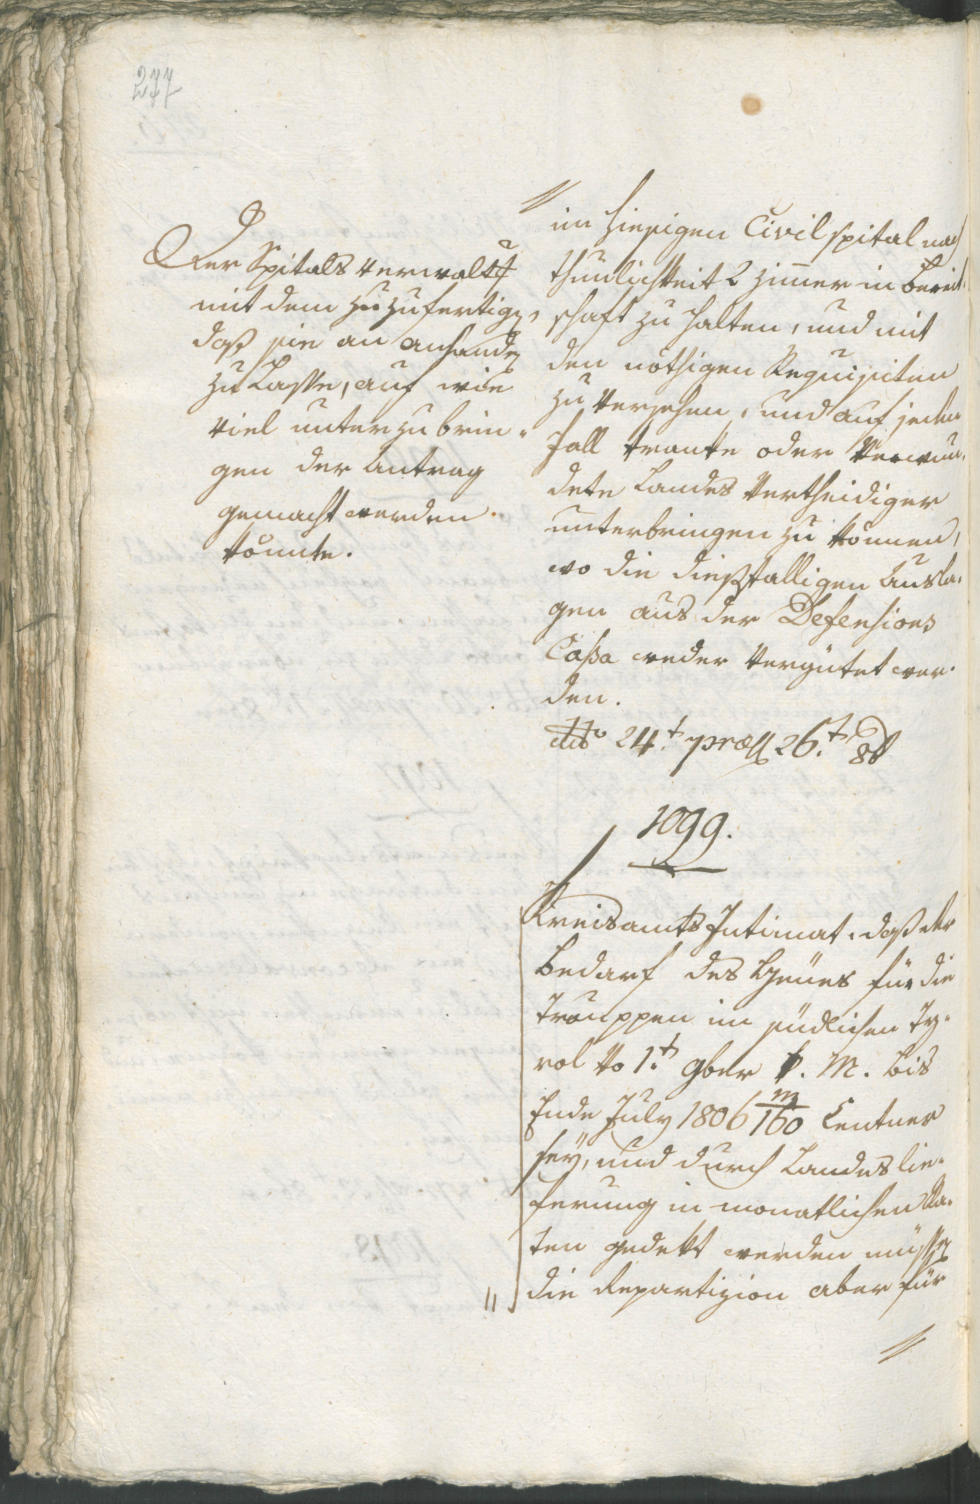 277
Der Spitals Verwaltg
mit dem zu zufertigen,
daß sie an anhanden
zu Lasse, auf wie
viel unterzubrin-
gen der Antrag
gemacht werden
könnte.
im hiesigen Civilspital nach
Thunlichkeit 2 Zimmer in bereit-
schaft zu halten, und mit
den nöthigen Requisiten
zu versehen, und auf jeden
Fall kranke oder Verwun-
dete Landes Vertheidiger
unterbringen zu können,
wo die dießfälligen Ausla-
gen aus der Defensions
Cassa werden vergütet wer-
den.
dto 24.t præs 26.t 8b
1099.
Kreisamts Intimat. daß der
Bedarf des Heues für die
Trouppen im südlichen Ty-
rol vo 1.t 9ber k. M. bis
Ende July 1806 m/160 Centner
sey, und durch Landeslie-
ferung in monatlichen Ra-
ten gedekt werden müssen
die Repartizion aber für